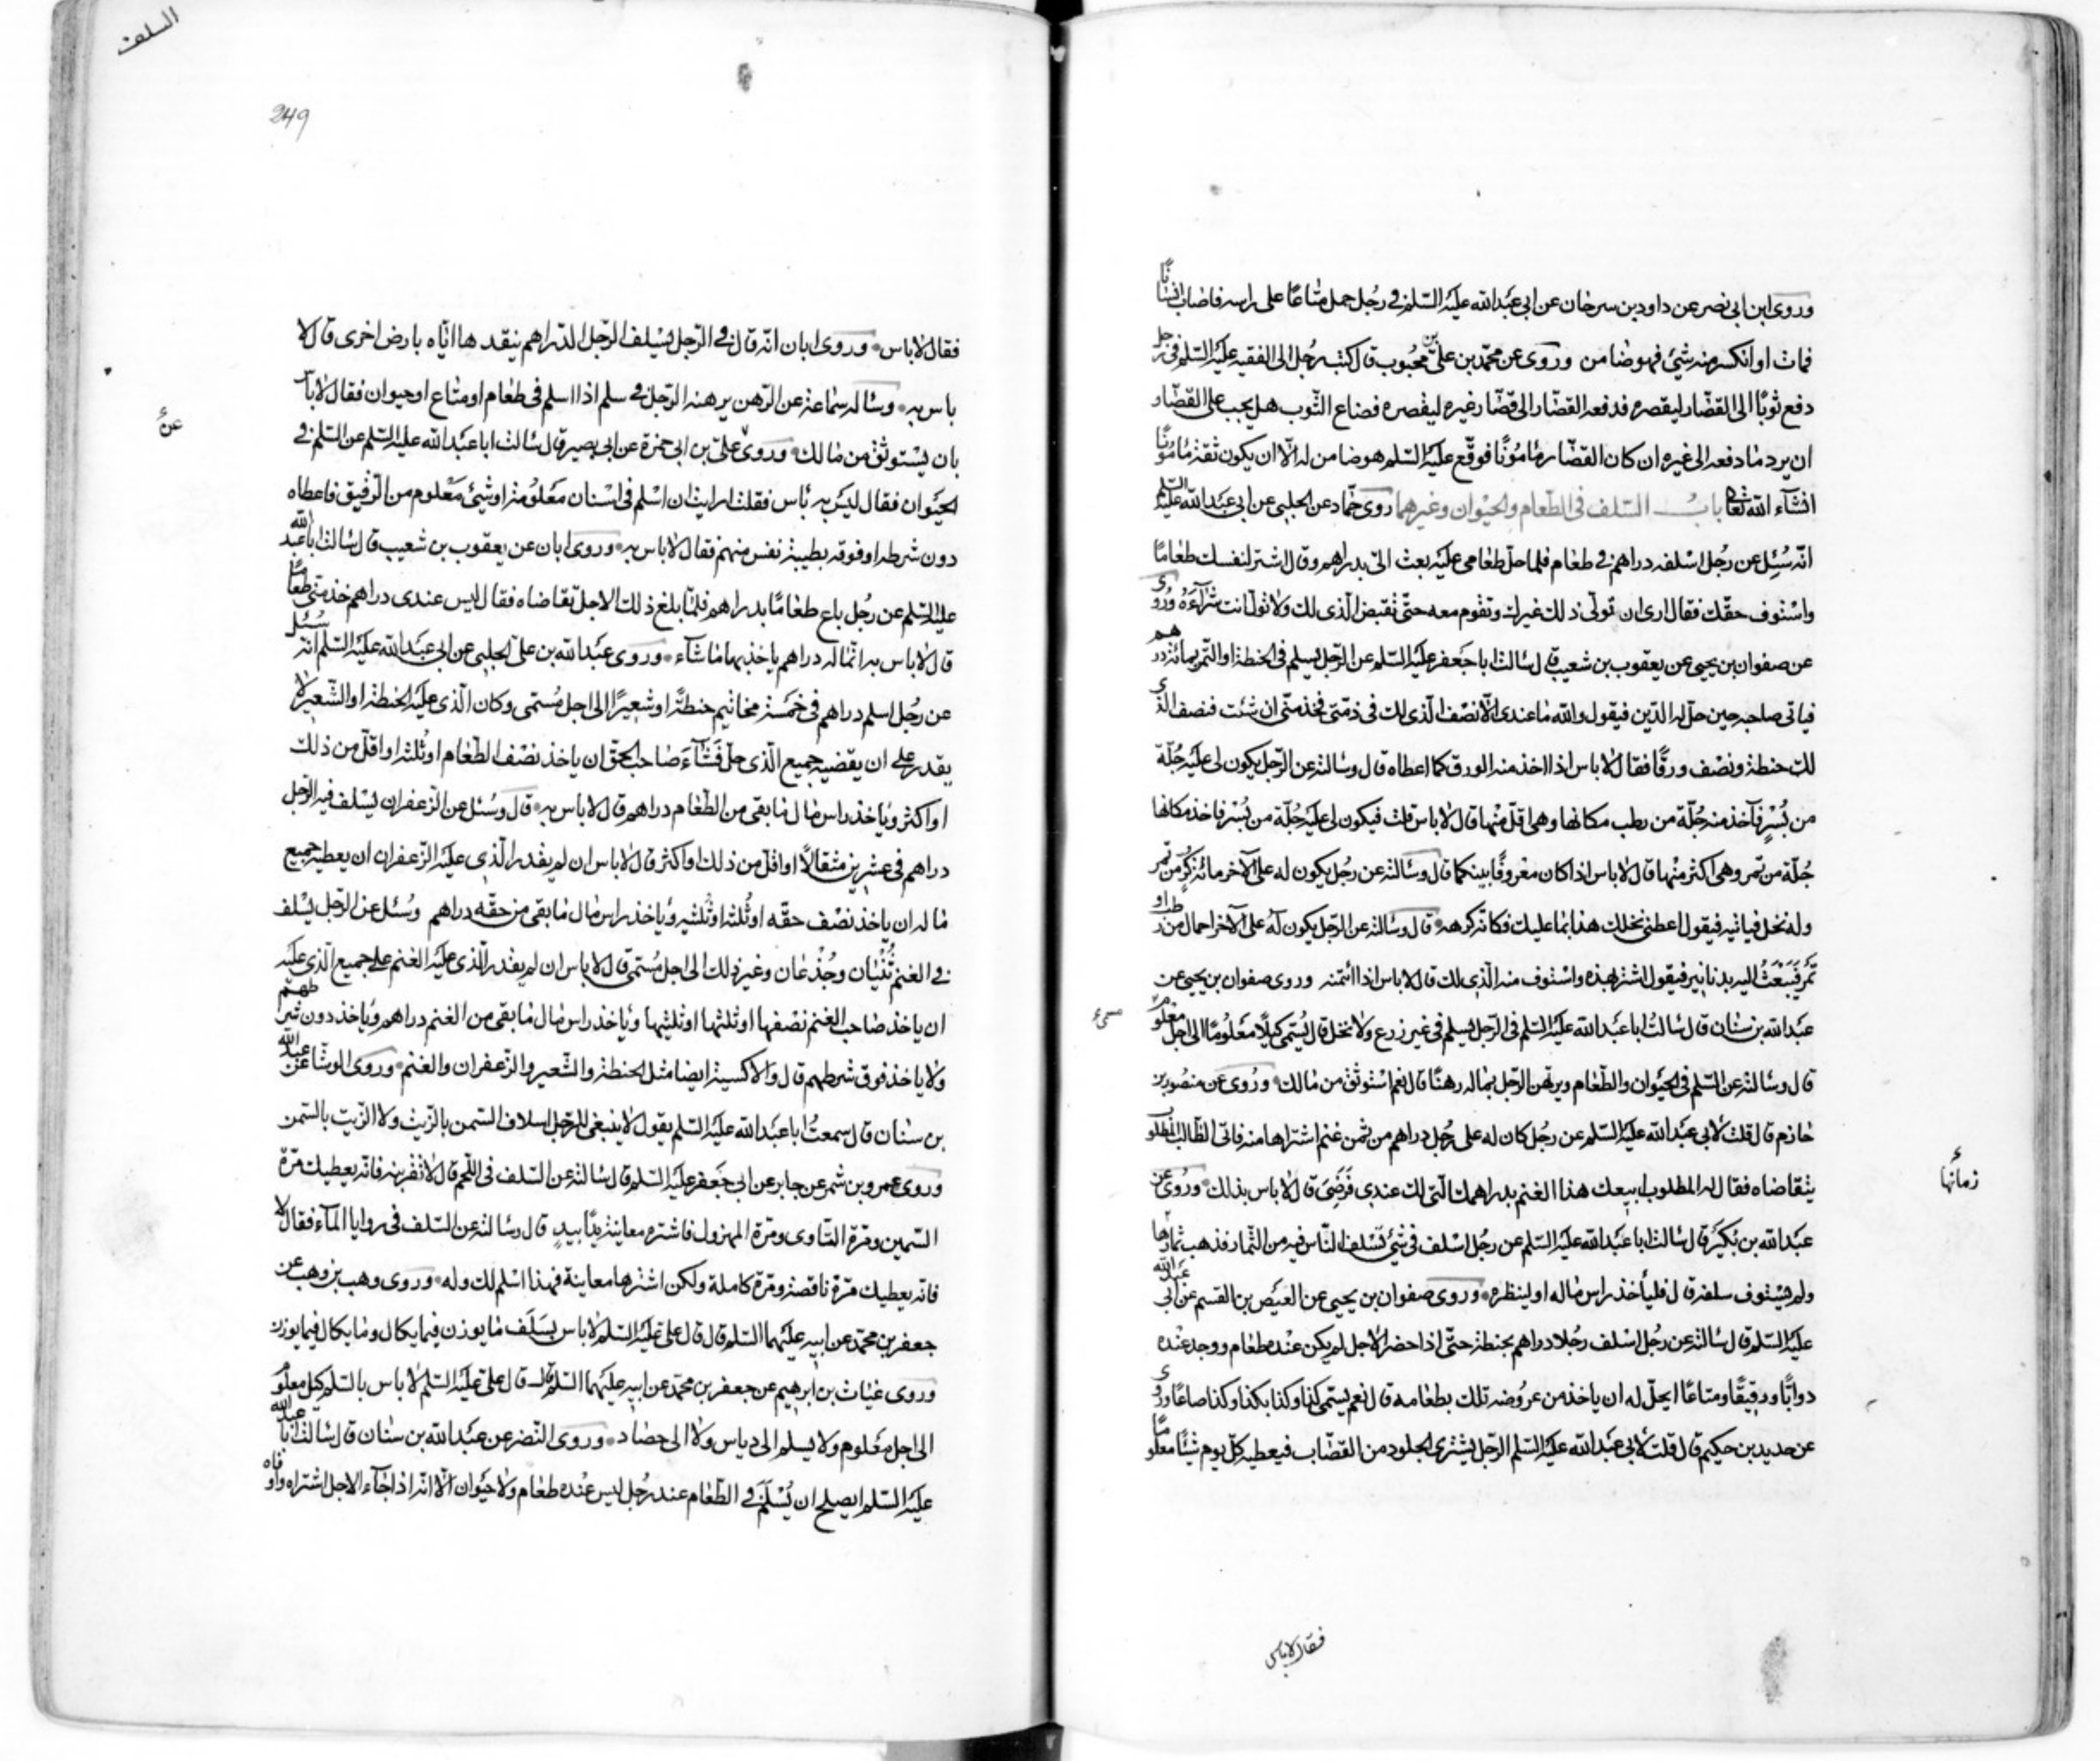 وروى ابن ابى نصر عن داود بن سرحان عن ابى عبدالله عليه السلم فى رجل حمل متاعًا على راسه فاصاب انسانًا
فمات او انكسر منه شئ فهو ضامن وروى عن محمد بن على بن محبوب قال كتب رجل الى الفقيه عليه السلم فى رجل
دفع ثوبًا الى القصّار ليقصره فدفعه القصّار الى قصّار غيره ليقصره فضاع الثوب هل يجب على القصّار
ان يرد ما دفعه الى غيره ان كان القصّار مأمونًا فوقّع عليه السلم هو ضامن له الّا ان يكون ثقة مأمونًا
انشآء الله تعالى باب السلف فى الطعام والحيوان وغيرهما روى حماد عن الحلبى عن ابى عبدالله عليه السلم
انّه سُئل عن رجل اسلفه دراهم فى طعام فلما حلّ طعامى عليه بعث الىّ بدراهم وقال اشتر لنفسك طعامًا
واستوف حقّك فقال ارى ان تولّى ذلك غيرك وتقوم معه حتّى تقبض الذى لك ولا تولّ انت شرآءه وروى
عن صفوان بن يحيى عن يعقوب بن شعيب قال سالت ابا جعفر عليه السلم عن الرّجل يسلم فى الحنطة او التمر بمائة درهم
فياتى صاحبه حين حلّ له الدّين فيقول والله ما عندى الّا نصف الّذى لك فى ذمّتى فخذ منّى ان شئت فنصف الذى
لك حنطة ونصف ورقًا فقال لا باس اذا اخذ منه الورق كما اعطاه قال وسالته عن الرّجل يكون لى عليه جُلّة
من بُسْر فآخذ منه جُلّة من رطب مكانها وهى اقلّ منها قال لا باس قلت فيكون لى عليه جُلّة من بُسْر فاخذ مكانها
جُلّة من تمر وهى اكثر منها قال لا باس اذا كان معروفًا بينكما قال وسالته عن رجل يكون له على الآخر مائة كُرّ من تمر
وله نخل فياتيه فيقول اعطنى نخلك هذا بما عليك فكانّه كرهه قال وسالته عن الرّجل يكون له على الآخر احمال من رطب او
تمر فيبعث اليه بدنانير فيقول اشتر بهذه واستوف منه الّذى لك قال لا باس اذا ائتمنه وروى صفوان بن يحيى عن
عبدالله بن سنان قال سالت ابا عبدالله عليه السلم فى الرّجل يسلم فى غير زرع ولا نخل قال يُسمّى كيلًا معلومًا الى اجل معلوم
قال وسالته عن السلم فى الحيوان والطعام ويرتهن الرّجل بماله رهنًا قال نعم استوثق من مالك وروى عن منصور بن
حازم قال قلت لابى عبدالله عليه السلم عن رجل كان له على رجل دراهم من ثمن غنم اشتراها منه فاتى الطالب المطلوب
يتقاضاه فقال له المطلوب ابيعك هذا الغنم بدراهمك الّتى لك عندى فرضى قال لا باس بذلك وروى عن
عبدالله بن بكير قال سالت ابا عبدالله عليه السلم عن رجل اسلف فى شئ تسلف النّاس فيه من الثمار فذهب ثمارها
ولم يستوف سلفه قال فلياخذ راس ماله او لينظره وروى صفوان بن يحيى عن العيص بن القسم عن ابى عبدالله
عليه السلم قال سالته عن رجل اسلف رجلا دراهم بحنطة حتّى اذا حضر الاجل لم يكن عنده طعام ووجد عنده
دوابًّا ورقيقًا ومتاعًا ايحلّ له ان ياخذ من عروضه تلك بطعامه قال نعم يسمّى كذا وكذا بكذا وكذا صاعًا وروى
عن حديد بن حكيم قال قلت لابى عبدالله عليه السلم الرّجل يشترى الجلود من القصّاب فيعطيه كلّ يوم شيئًا معلومًا
زمانها
فقال لا باس
السلف
249
فقال لا باس وروى ابان انّه قال فى الرّجل يسلف الرّجل الدّراهم ينقدها ايّاه بارض اخرى قال لا
باس به وساله سماعة عن الرّهن يرهنه الرّجل فى سلم اذا اسلم فى طعام او متاع او حيوان فقال لا باس
بان يستوثق من مالك وروى على بن ابى حمزة عن ابى بصير قال سالت ابا عبدالله عليه السلم عن السلم فى
الحيوان فقال ليس به باس فقلت ارايت ان اسلم فى اسنان معلومة او شئ معلوم من الرّقيق فاعطاه
دون شرطه او فوقه بطيبة نفس منهم فقال لا باس به وروى ابان عن يعقوب بن شعيب قال سالت ابا عبدالله
عليه السلم عن رجل باع طعامًا بدراهم فلمّا بلغ ذلك الاجل تقاضاه فقال ليس عندى دراهم خذ منّى طعامًا
قال لا باس به انّما له دراهم ياخذ بها ما شآء وروى عبدالله بن على الحلبى عن ابى عبدالله عليه السلم انّه سُئل
عن رجل اسلم دراهم فى خمسة مخاتيم حنطة او شعيرًا الى اجل مُسمّى وكان الّذى عليه الحنطة او الشعير لا
يقدر على ان يقضيه جميع الّذى حلّ فشآء صاحب الحق ان ياخذ نصف الطعام او ثلثه او اقلّ من ذلك
او اكثر وياخذ راس مال ما بقى من الطعام دراهم قال لا باس به قال وسُئل عن الزعفران يسلف فيه الرّجل
دراهم فى عشرين مثقالًا او اقلّ من ذلك او اكثر قال لا باس ان لم يقدر الّذى عليه الزعفران ان يعطيه جميع
ماله ان ياخذ نصف حقّه او ثلثه او ثلثيه وياخذ راس مال ما بقى من حقّه دراهم وسُئل عن الرّجل يسلف
فى الغنم ثُنيان وجُذعان وغير ذلك الى اجل مُسمّى قال لا باس ان لم يقدر الّذى عليه الغنم على جميع الّذى عليه
ان ياخذ صاحب الغنم نصفها او ثلثها او ثلثيها وياخذ راس مال ما بقى من الغنم دراهم وياخذ دون شرطهم
ولا ياخذ فوق شرطهم قال والاكسية ايضا مثل الحنطة والشعير والزعفران والغنم وروى الوشا عن عبدالله
بن سنان قال سمعت ابا عبدالله عليه السلم يقول لا ينبغى للرّجل اسلاف السمن بالزيت ولا الزيت بالسمن
وروى عمرو بن شمر عن جابر عن ابى جعفر عليه السلم قال سالته عن السلف فى اللّحم قال لا تقربنه فانّه يعطيك مرّة
السمين ومرّة التاوى ومرّة المهزول فاشتره معاينة يدًا بيد قال وسالته عن السلف فى روايا المآء فقال لا
فانّه يعطيك مرّة ناقصة ومرّة كاملة ولكن اشترها معاينة فهذا اسلم لك وله وروى وهب بن وهب عن
جعفر بن محمّد عن ابيه عليهما السلم قال قال على عليه السلم لا باس بسلف ما يوزن فيما يكال وما يكال فيما يوزن
وروى غياث بن ابرهيم عن جعفر بن محمّد عن ابيه عليهما السلم قال قال على عليه السلم لا باس بالسلم كيل معلوم
الى اجل معلوم ولا يسلم الى دياس ولا الى حصاد وروى النضر عن عبدالله بن سنان قال سالت ابا عبدالله
عليه السلم ايصلح ان يُسْلَم فى الطعام عند رجل ليس عنده طعام ولا حيوان الّا انّه اذا جآء الاجل اشتراه واوفاه
عن